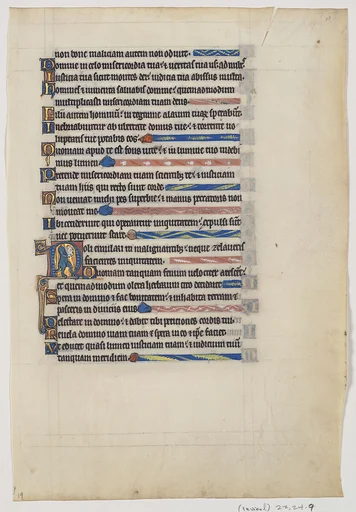 non bone maliciam autem non odiuit.
Domine in celo misericordia tua: & veritas tua usq; ad nubes.
Iusticia tua sicut montes dei: iudicia tua abissus multa.
Homines & iumenta saluabis domine: quemadmodum
multiplicasti misericordiam tuam deus.
Filii autem hominum: in tegmine alarum tuarum sperabunt.
Inebriabuntur ab ubertate domus tue: & torrente uo
luptatis tue potabis eos.
Quoniam apud te est fons uite: & in lumine tuo uidebi
mus lumen.
Pretende misericordiam tuam scientibus te: & iusticiam
tuam hiis qui recto sunt corde.
Non ueniat michi pes superbie: & manus peccatoris non
moueat me.
Ibi ceciderunt qui operantur iniquitatem: expulsi sunt
nec potuerunt stare.
Noli emulari in malignantibus: neque zelaueris
facientes iniquitatem.
Quoniam tanquam fenum uelociter arescent:
et quemadmodum olera herbarum cito decident.
Spera in domino & fac bonitatem: & inhabita terram &
pasceris in diuiciis eius.
Delectare in domino: & dabit tibi peticiones cordis tui.
Reuela domino uiam tuam & spera in eo: & ipse faciet.
Et educet quasi lumen iusticiam tuam: & iudicium tuum
tanquam meridiem.
19
22.24.9